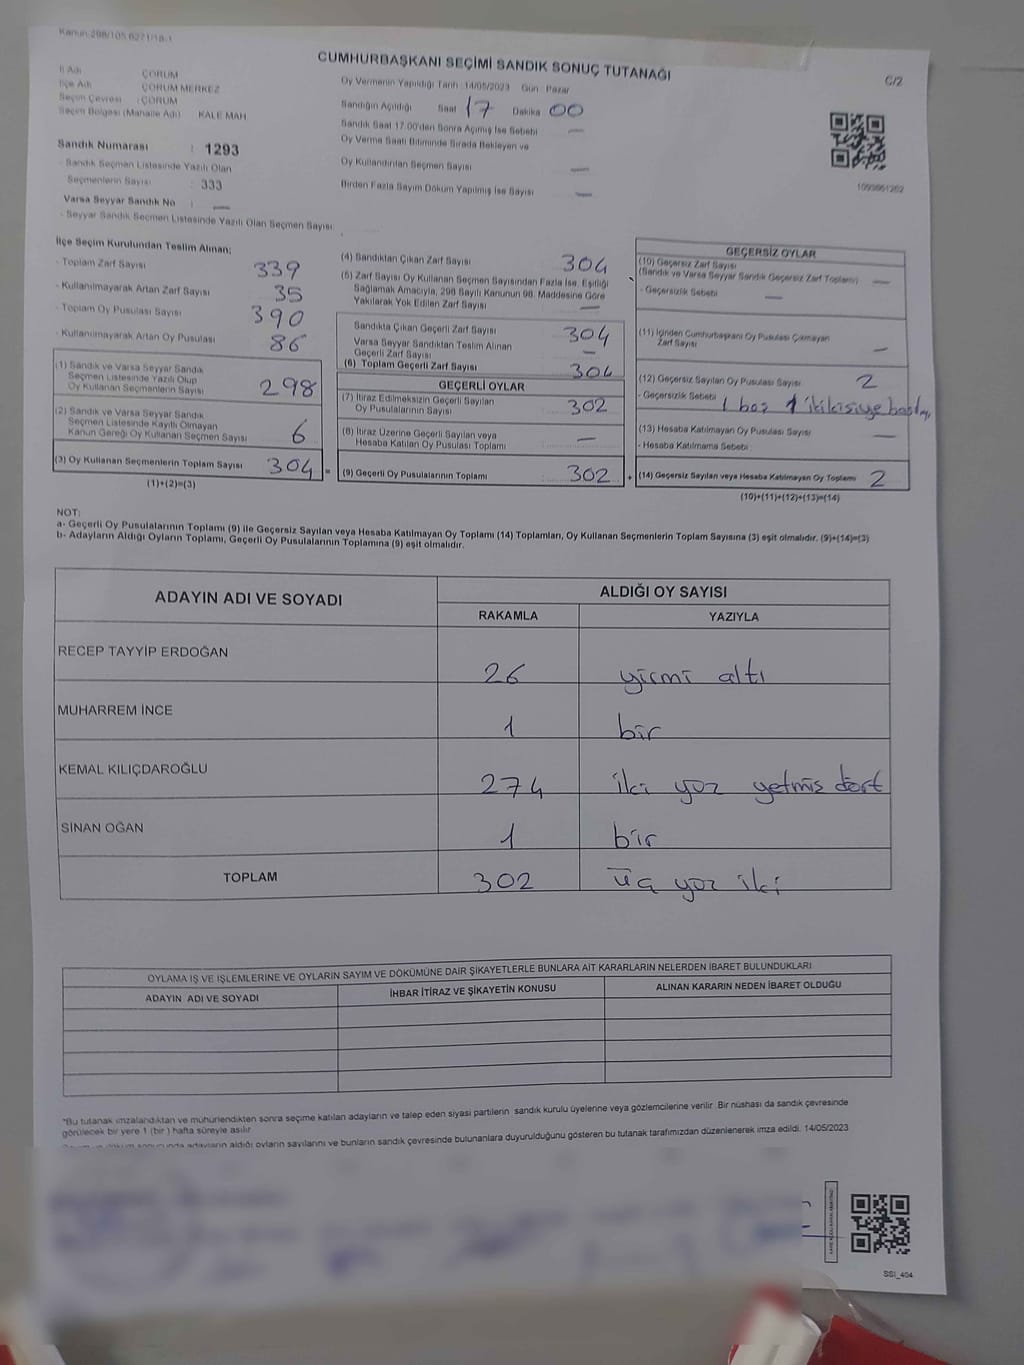 Kanun:298/105 6271/18-1
CUMHURBAŞKANI SEÇİMİ SANDIK SONUÇ TUTANAĞI
C/2
İl Adı : ÇORUM
İlçe Adı : ÇORUM MERKEZ
Seçim Çevresi : ÇORUM
Seçim Bölgesi (Mahalle Adı) KALE MAH.
Sandık Numarası : 1293
- Sandık Seçmen Listesinde Yazılı Olan
Seçmenlerin Sayısı : 333
Varsa Seyyar Sandık No : —
- Seyyar Sandık Seçmen Listesinde Yazılı Olan Seçmen Sayısı :
Oy Vermenin Yapıldığı Tarih :14/05/2023 Gün : Pazar
Sandığın Açıldığı Saat 17 Dakika 00
Sandık Saat 17.00'den Sonra Açımış İse Sebebi —
Oy Verme Saati Bitiminde Sırada Bekleyen ve
Oy Kullandırılan Seçmen Sayısı —
Birden Fazla Sayım Döküm Yapılmış İse Sayısı —
1093861262
İlçe Seçim Kurulundan Teslim Alınan;
- Toplam Zarf Sayısı 339
- Kullanılmayarak Artan Zarf Sayısı 35
- Toplam Oy Pusulası Sayısı 390
- Kullanılmayarak Artan Oy Pusulası 86
(1) Sandık ve Varsa Seyyar Sandık
Seçmen Listesinde Yazılı Olup
Oy Kullanan Seçmenlerin Sayısı 298
(2) Sandık ve Varsa Seyyar Sandık
Seçmen Listesinde Kayıtlı Olmayan
Kanun Gereği Oy Kullanan Seçmen Sayısı 6
(3) Oy Kullanan Seçmenlerin Toplam Sayısı 304 =
(1)+(2)=(3)
(4) Sandıktan Çıkan Zarf Sayısı 304
(5) Zarf Sayısı Oy Kullanan Seçmen Sayısından Fazla İse, Eşitliği
Sağlamak Amacıyla, 298 Sayılı Kanunun 98. Maddesine Göre
Yakılarak Yok Edilen Zarf Sayısı —
Sandıkta Çıkan Geçerli Zarf Sayısı 304
Varsa Seyyar Sandıktan Teslim Alınan
Geçerli Zarf Sayısı —
(6) Toplam Geçerli Zarf Sayısı 304
GEÇERLİ OYLAR
(7) İtiraz Edilmeksizin Geçerli Sayılan
Oy Pusulalarının Sayısı 302
(8) İtiraz Üzerine Geçerli Sayılan veya
Hesaba Katılan Oy Pusulası Toplamı —
(9) Geçerli Oy Pusulalarının Toplamı 302 +
GEÇERSİZ OYLAR
(10) Geçersiz Zarf Sayısı
(Sandık ve Varsa Seyyar Sandık Geçersiz Zarf Toplamı) —
- Geçersizlik Sebebi —
(11) İçinden Cumhurbaşkanı Oy Pusulası Çıkmayan
Zarf Sayısı —
(12) Geçersiz Sayılan Oy Pusulası Sayısı 2
- Geçersizlik Sebebi 1 boş 1
(13) Hesaba Katılmayan Oy Pusulası Sayısı —
- Hesaba Katılmama Sebebi :
(14) Geçersiz Sayılan veya Hesaba Katılmayan Oy Toplamı 2
(10)+(11)+(12)+(13)=(14)
NOT:
a- Geçerli Oy Pusulalarının Toplamı (9) ile Geçersiz Sayılan veya Hesaba Katılmayan Oy Toplamı (14) Toplamları, Oy Kullanan Seçmenlerin Toplam Sayısına (3) eşit olmalıdır. (9)+(14)=(3)
b- Adayların Aldığı Oyların Toplamı, Geçerli Oy Pusulalarının Toplamına (9) eşit olmalıdır.
ADAYIN ADI VE SOYADI ALDIĞI OY SAYISI
RAKAMLA YAZIYLA
RECEP TAYYİP ERDOĞAN 26 yirmi altı
MUHARREM İNCE 1 bir
KEMAL KILIÇDAROĞLU 274 iki yüz yetmiş dört
SİNAN OĞAN 1 bir
TOPLAM 302 üç yüz iki
OYLAMA İŞ VE İŞLEMLERİNE VE OYLARIN SAYIM VE DÖKÜMÜNE DAİR ŞİKAYETLERLE BUNLARA AİT KARARLARIN NELERDEN İBARET BULUNDUKLARI
ADAYIN ADI VE SOYADI İHBAR İTİRAZ VE ŞİKAYETİN KONUSU ALINAN KARARIN NEDEN İBARET OLDUĞU
*Bu tutanak imzalandıktan ve mühürlendikten sonra seçime katılan adayların ve talep eden siyasi partilerin sandık kurulu üyelerine veya gözlemcilerine verilir. Bir nüshası da sandık çevresinde
görülecek bir yere 1 (bir ) hafta süreyle asılır.
adayların aldığı oyların sayılarını ve bunların sandık çevresinde bulunanlara duyurulduğunu gösteren bu tutanak tarafımızdan düzenlenerek imza edildi. 14/05/2023
SSI_404